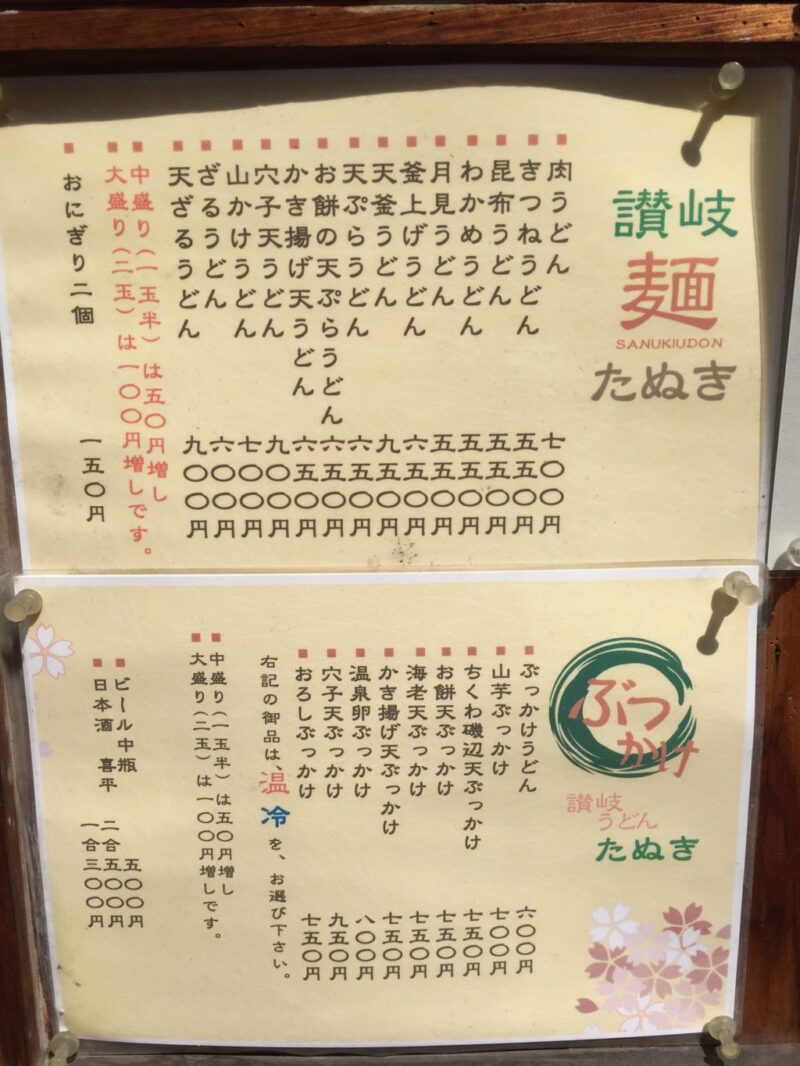 讃岐
麺
SANUKIUDON
たぬき
肉うどん 七〇〇円
きつねうどん 五五〇円
昆布うどん 五五〇円
わかめうどん 五五〇円
月見うどん 五五〇円
釜上げうどん 六五〇円
天釜うどん 九五〇円
天ぷらうどん 六五〇円
お餅の天ぷらうどん 六五〇円
かき揚げ天うどん 六五〇円
穴子天うどん 九〇〇円
山かけうどん 七〇〇円
ざるうどん 六〇〇円
天ざるうどん 九〇〇円
中盛り(一玉半)は五〇円増し
大盛り(二玉)は一〇〇円増しです。
おにぎり二個 一五〇円
ぶっかけ
讃岐
うどん
たぬき
ぶっかけうどん 六〇〇円
山芋ぶっかけ 七〇〇円
ちくわ磯辺天ぶっかけ 七五〇円
お餅天ぶっかけ 七五〇円
海老天ぶっかけ 七五〇円
かき揚げ天ぶっかけ 七五〇円
温泉卵ぶっかけ 八〇〇円
穴子天ぶっかけ 九五〇円
おろしぶっかけ 七五〇円
右記の御品は、温冷を、お選び下さい。
中盛り(一玉半)は五〇円増し
大盛り(二玉)は一〇〇円増しです。
ビール中瓶 五〇〇円
日本酒 喜平 二合五〇〇円
一合三〇〇円